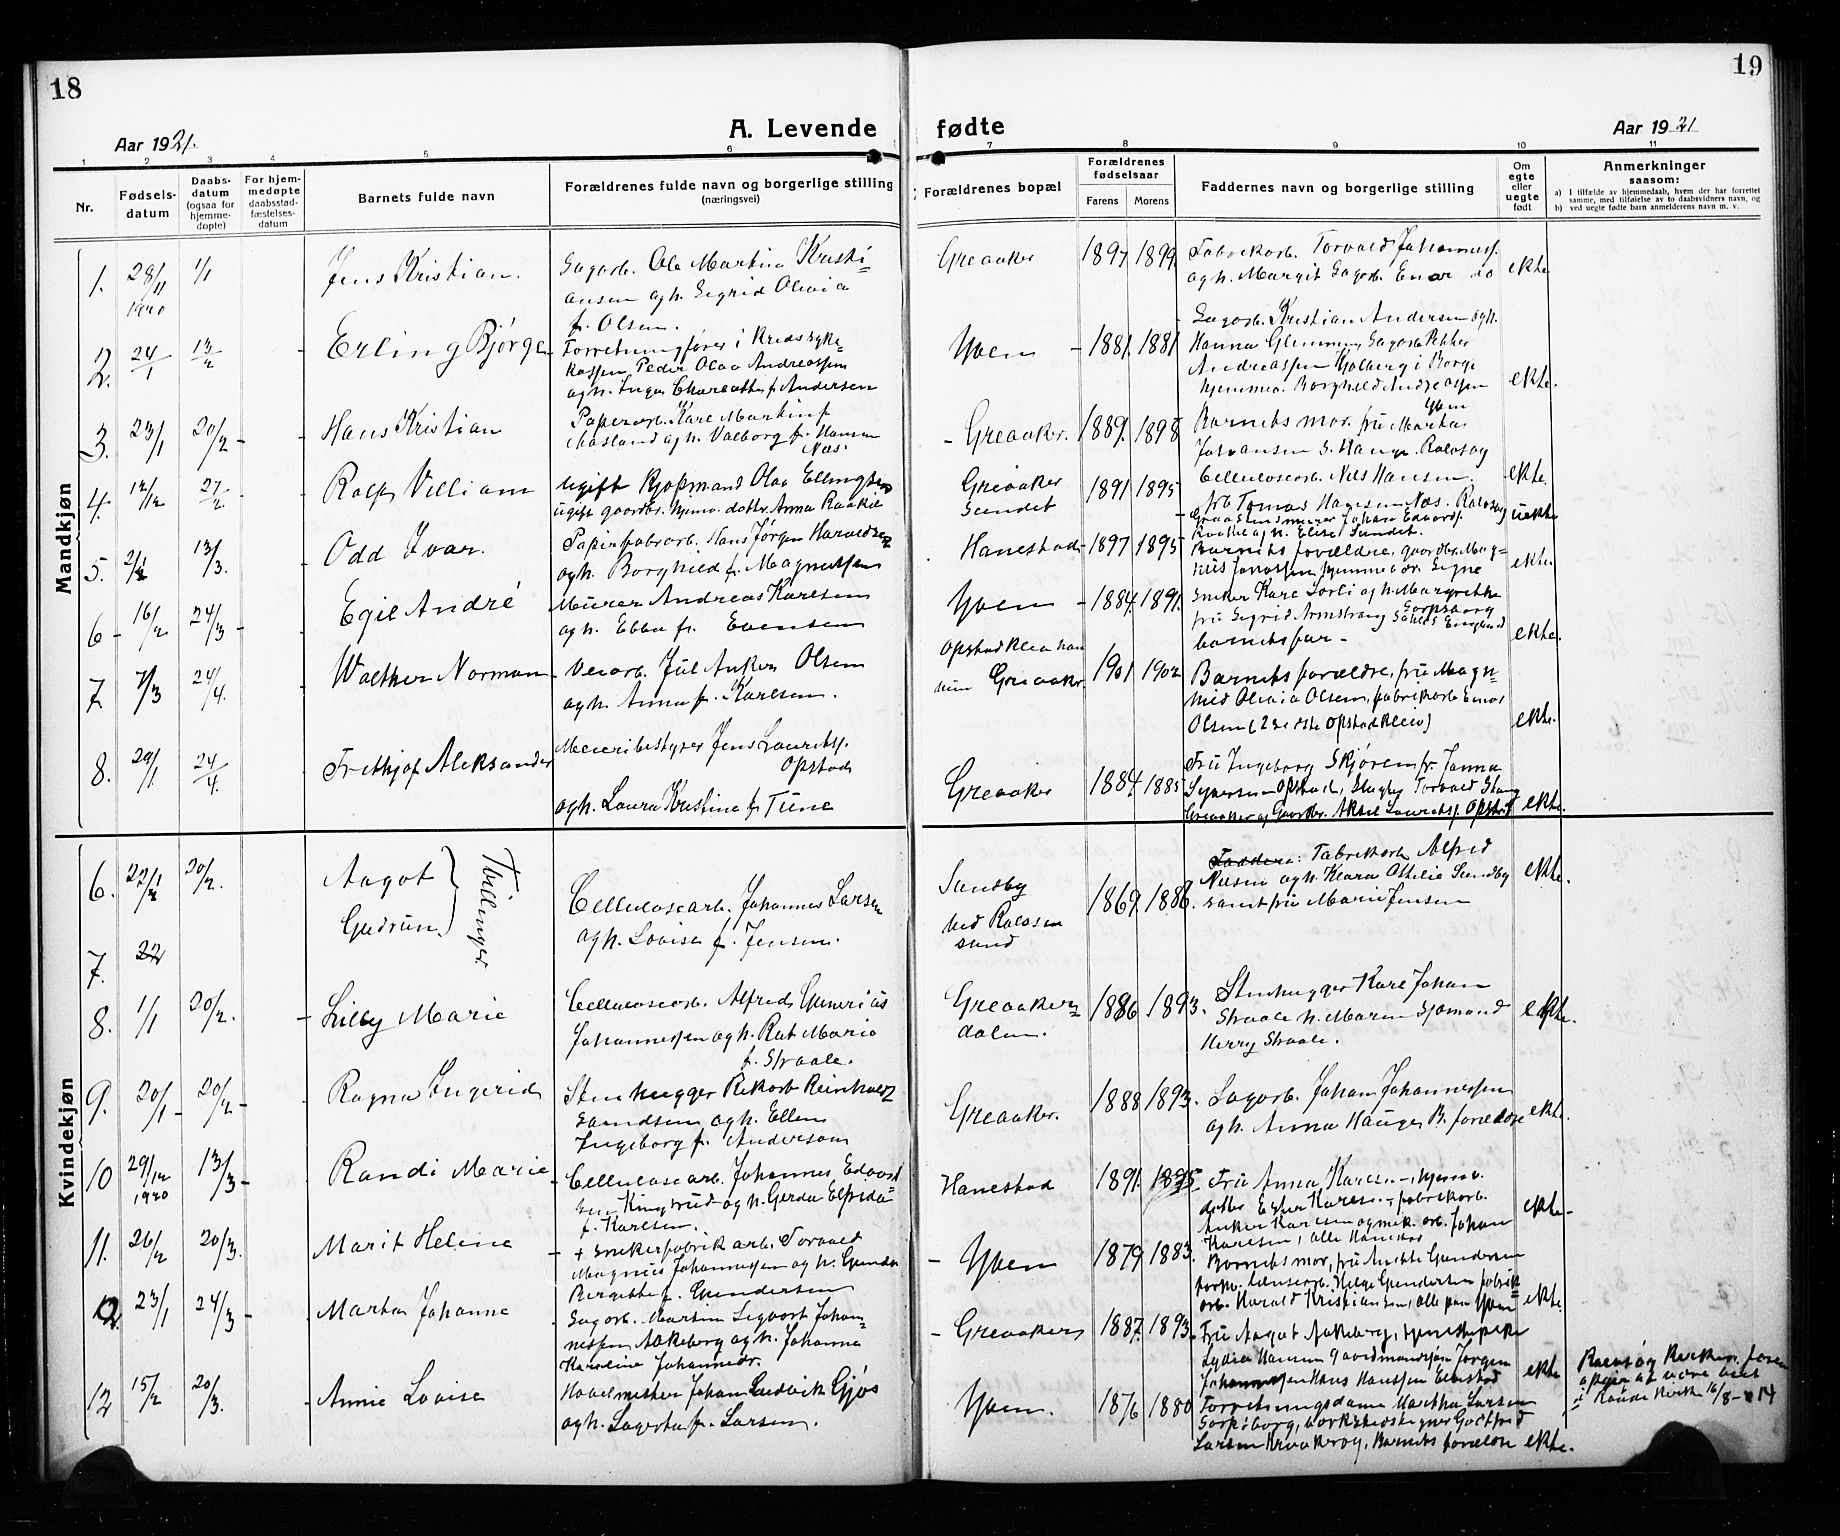 18
19
Aar 1921.
A. Levende
fødte
Aar 1921
1 2 3 4 5 6 7 8 9 10 11
Nr.
Fødsels-
datum
Daabs-
datum
(ogsaa for
hjemme-
døpte)
For hjem-
medøpte
daabsstad-
fæstelses-
datum
Barnets fulde navn
Forældrenes fulde navn og borgerlige stilling
(næringsvei)
Forældrenes bopæl
Forældrenes
fødselsaar
Farens
Morens
Faddernes navn og borgerlige stilling
Om
egte
eller
uegte
født
Anmerkninger
saasom:
a) I tilfælde av hjemmedaab, hvem der har forrettet
samme, med tilføielse av to daabsvidners navn, og
b) ved uegte fødte barn anmelderens navn m. v.
Mandkjøn
1. 28/11 1920 1/1
Jens Kristian.
Sagarb. Ole Martin Kristi-
ansen og h. Sigrid Olivia
f. Olsen.
Greaaker 1897 1899
Fabrikarb. Torvald Johannesf.
og h. Margit Sagarb. Enar do
ekte
2. 24/1 13/2
Erling Bjørge
Forretningfører i Kredssyke-
kassen Peder Olav Andreassen
og h. Inga Charlotte f. Andersen
Yven 1881. 1881
Sagarb. Kristian Andersen og h.
Hanna Glemmen, Sagarb. Petter
Andreassen Holberg i Borge
hjemmev. Borghild Andreassen
Yven
ekte.
3. 23/1 20/2
Hans Kristian
Papirarb. Karl Martinf
Aasland og h. Valborg f. Hansen
Næs.
Greaaker. 1889. 1898
Barnets mor. fru Marta
Johansen S. Hauge. Rolvsøy
Cellulosearb. Nils Hansen.
frk Tomas Hansen Næs. Rolvsøy
ekte.
4. 12/12 27/2
Rolf Villiam
ugift Kjøpmand Olav Ellingsen
ugift gaardbr. hjemv. dattr. Anna Raakil
Greaaker
Sundet
1891 1895
Graastensmurer Johan Edvardf.
Raakil og h. Elise Sundet.
uekte
5. 2/1 13/3.
Odd Ivar.
Papirfabarb. Hans Jørgen Haraldsen
og h. Borghild f. Magnussen
Hanestad 1897 1895
Barnets forældre, gaardbr. Mag-
nus Jonassen hjemmev. dr. Signe
ekte.
6 16/2 24/3
Egil André
Murer Andreas Karlsen
og h. Ebba f. Evensen
Yven 1884. 1891.
Sneker Karl Sorli og h. Margrethe
Sarpsborg
fru Sigrid Armstrang Schlds England
barnets far -
ekte.
7. 7/3 24/4.
Walther Norman
Veiarb. Jul Anker Olsen
og h. Anna f. Karlsen.
Opstad Kleiva
Greaaker. 1901 1902
Barnets forældre, fru Magn-
hild Olivia Olsen, fabrikarb Enar
Olsen (2 sidste Opstadkleiv)
ekte.
8. 29/1. 24/4.
Frithjof Aleksander
Meieribestyrer Jens Lauritsf.
Opstad
og h. Laura Kristina f. Tune
Greaaker 1884. 1885
Fru Ingeborg Skjøren, fr. Janna
Syversen Opstad, Slagter Torvald Stang
Greaaker og Gaardbr. Aksel Lauritsf. Opstad
ekte.
Kvindekjøn
6. 22/1 20/2.
Aagot
Gudrun
Tvillinger.
Cellulosearb. Johannes Larsen
og h. Lovise f. Jensen.
Sundby
ved Rolvsøy
sund
1869. 1886.
Faddere: Fabrikarb. Alfred
Nilsen og h. Klara Othilie Sundby
samt fru Marie Jensen
ekte.
7. 22
8. 1/1 20/2.
Lilly Marie
Cellulosearb. Alfred Gunerius
Johannessen og h. Rut Marie
f. Straale.
Greaaker-
dalen.
1886 1893.
Stenhugger Karl Johan
Straale h. Maren Sjømand
Herry Straale.
ekte.
9. 20/1 20/2
Ragna Ingerid
Stenhugger Rikard Reinholdt
Samdsen og h. Ellen
Ingeborg f. Anderson
Greaaker. 1888 1893.
Sagarb. Johan Johannessen
og h. Anna Hauger B. forældre
ekte.
10 29/12 1920 13/3
Randi Marie
Cellulosearb. Johannes Edvard
Kingsrud og h. Gerda Elfrida
f. Karlsen.
Hanestad 1891. 1895.
Fru Anna Karlsen, hjemv.
datter Ester Karlsen, fabrikarb.
Anker Karlsen og mek. arb. Johan
Karlsen, alle Hanestad
ekte
11. 26/2 20/3.
Marit Helene
+ Snekerfabrikarb. Torvald
Magnus Johannessen og h. Gunda
Bergitte f. Gundersen
Yven 1879. 1883.
Barnets mor, fru Anette Gundersen
Helge Gundersen fabrik
arb. Harald Kristiansen, alle paa Yven
ekte.
12. 23/1 24/3
Marta Johanne
Sagarb. Martin Sigvart Johan-
nessen Aakeberg og h. Johanne
Karoline Johannedr.
Greaaker 1887. 1893.
Fru Aagot Aakeberg, tjenestepike
Lydia Hansen gaardmandsøn Jørgen
Johannessen Hans Hanssen Elvestad
ekte
12 15/2 20/3.
Annie Lovise
Høvelmester Johan Ludvik Gjøs
og h. Lagertha f. Larsen.
Yven. 1876 1880
Forretningsdame Martha Larsen
Sarpsborg, verkstedseier Godtfred
Larsen Kraakerøy, Barnets forældre
ekte.
Rolvsøy Kirke.
Raade Kirke 16/8-14